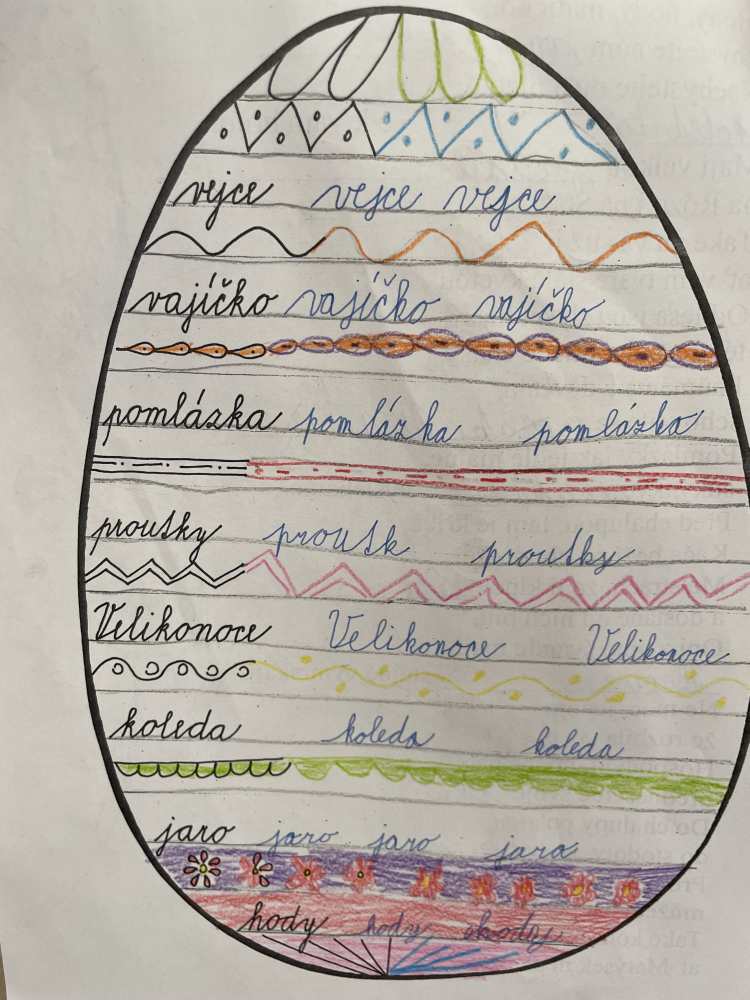 vejce vejce vejce
vajíčko vajíčko vajíčko
pomlázka pomlázka pomlázka
proutky proutk proutky
Velikonoce Velikonoce Velikonoce
koleda koleda koleda
jaro jaro jaro jaro
hody hody